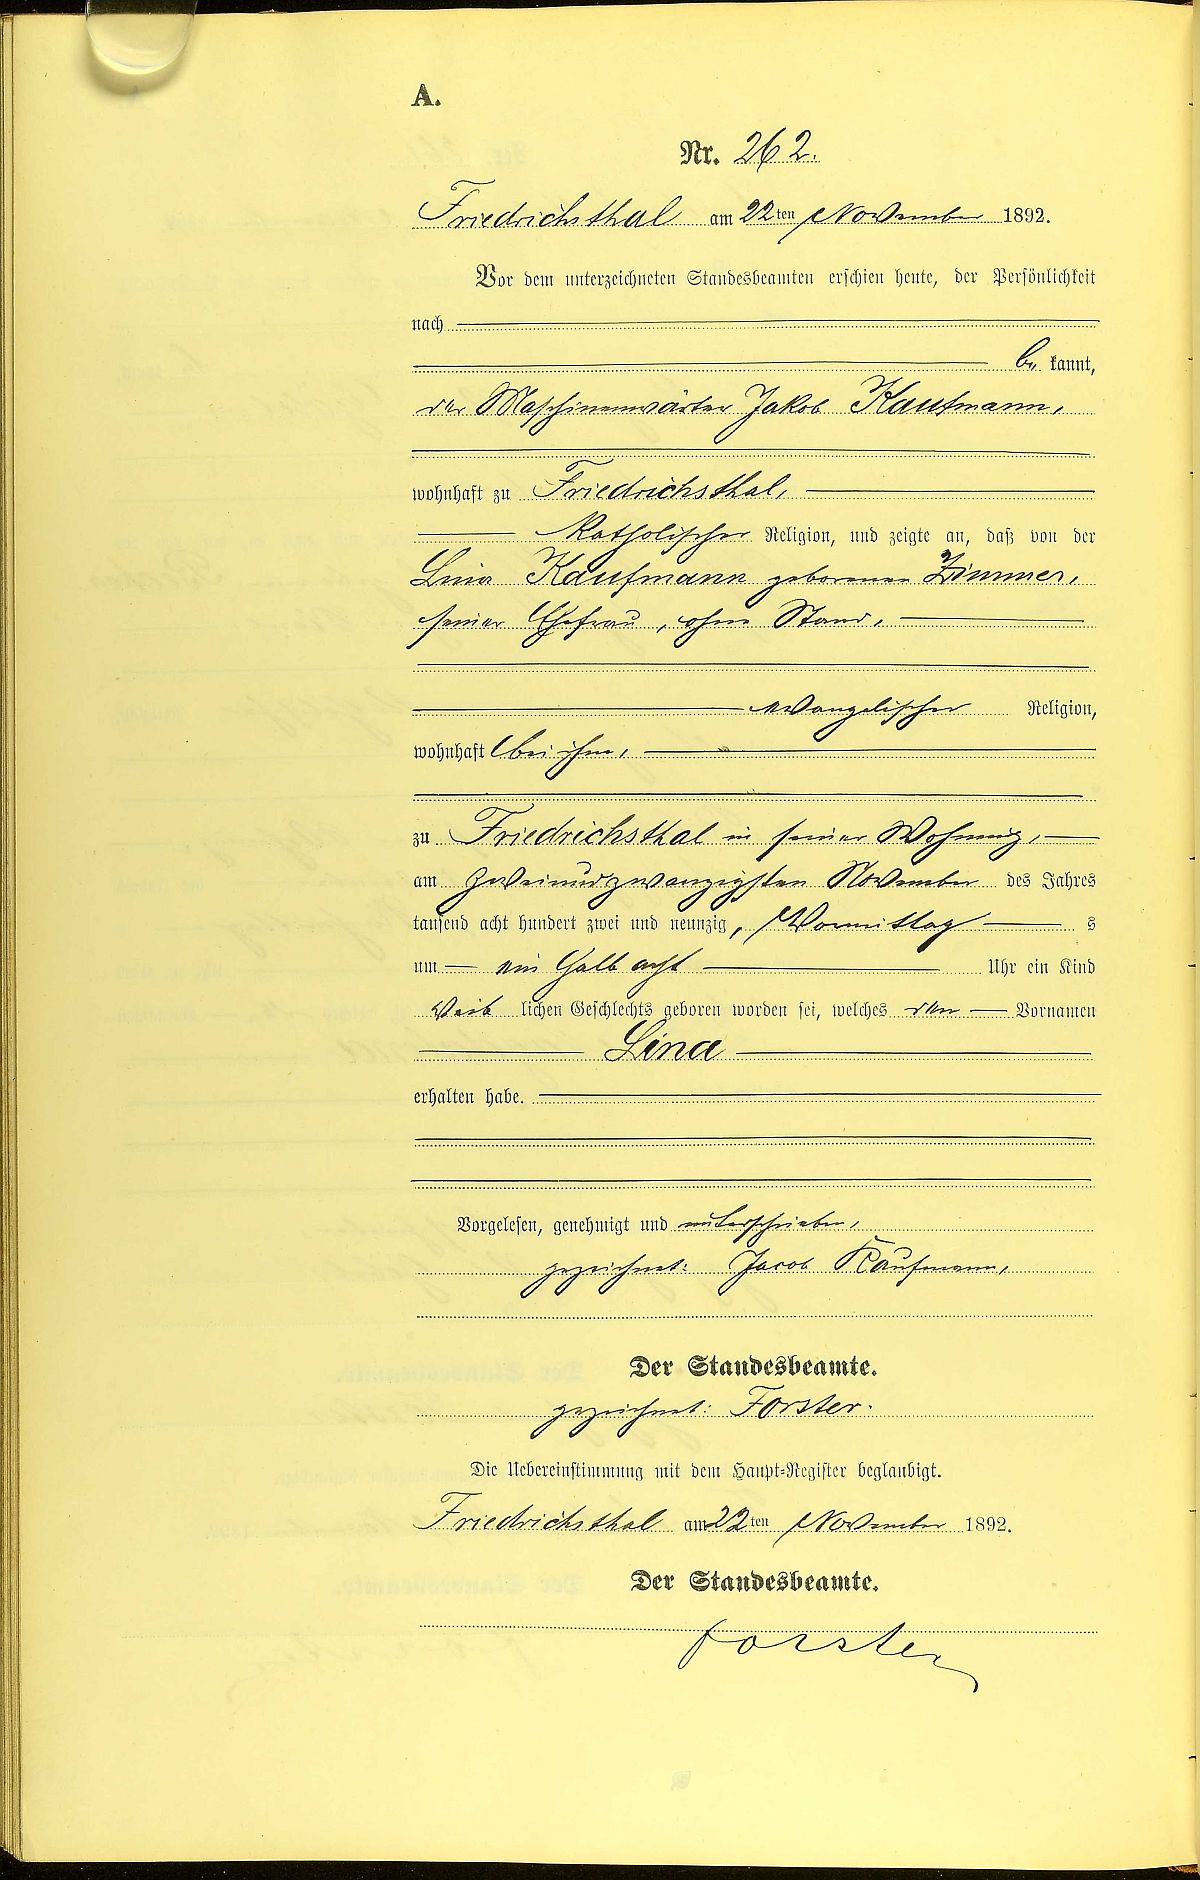 A.
Nr. 262.
Friedrichsthal am 22ten November 1892.
Vor dem unterzeichneten Standesbeamten erschien heute, der Persönlichkeit
nach
be kannt,
der Maschinenwärter Jakob Kaufmann,
wohnhaft zu Friedrichsthal,
katholischer Religion, und zeigte an, daß von der
Lina Kaufmann geborenen Zimmer,
seiner Ehefrau, ohne Stand,
evangelischer Religion,
wohnhaft bei ihm,
zu Friedrichsthal in seiner Wohnung,
am zweiundzwanzigsten November des Jahres
tausend acht hundert zwei und neunzig, Vormittag s
um ein halb acht Uhr ein Kind
weib lichen Geschlechts geboren worden sei, welches den Vornamen
Lina
erhalten habe.
Vorgelesen, genehmigt und unterschrieben,
gezeichnet: Jacob Kaufmann,
Der Standesbeamte.
gezeichnet: Forster.
Die Uebereinstimmung mit dem Haupt-Register beglaubigt.
Friedrichsthal am 22ten November 1892.
Der Standesbeamte.
Forster